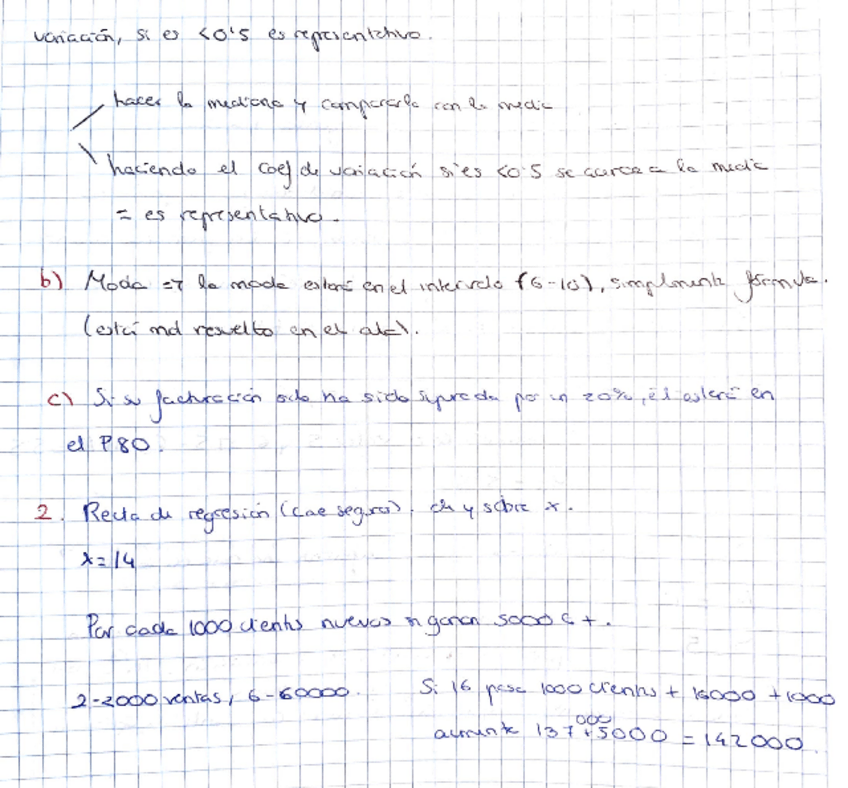 variación, si es <0'5 es representativo.
hacer la mediana y compararla con la media
haciendo el coef de variación si es <0'5 se acerca a la media
= es representativo.
b) Moda => la moda estará en el intervalo (6-10), simplemente fórmula.
(está mal resuelto en el
c) Si su facturación solo ha sido superada por un 20%, él estará en
el P80.
2. Recta de regresión (cae seguro). de y sobre x.
x=14
Por cada 1000 clientes nuevos ganan 5000 € +.
2-2000 ventas, 6-60000.
Si 16 pasa 1000 clientes + 16000 +1000
aumenta 137000+5000 = 142000